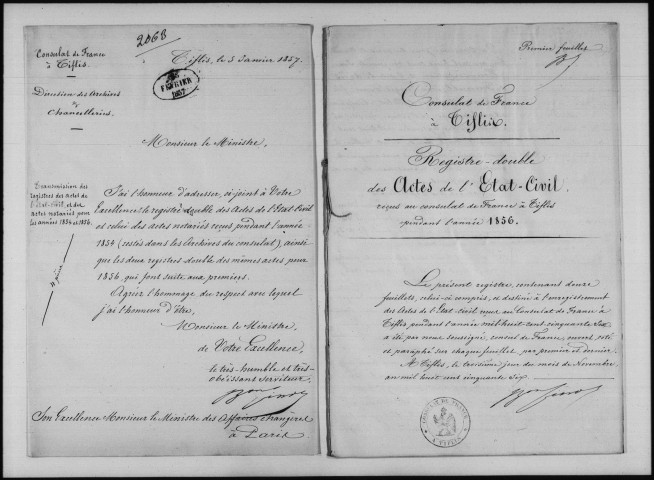 2068
Consulat de France
à Tiflis.
Direction des Archives
&
Chancelleries.
Tiflis, le 5 Janvier 1857.
FÉVRIER
1857
Monsieur le Ministre,
Transmission des
registres des Actes de
l'État-Civil, et des
actes notariés pour
les années 1854 et 1856.
4 pièces
J'ai l'honneur d'adresser, ci-joint à Votre
Excellence le registre double des Actes de l'Etat Civil
et celui des actes notariés reçus pendant l'année
1854 (restés dans les Archives du consulat), ainsi
que les deux registres double des mêmes actes pour
1856, qui font suite aux premiers.
Agréez l'hommage du respect avec lequel
j'ai l'honneur d'être,
Monsieur le Ministre
de Votre Excellence,
le très-humble et très-
obéissant serviteur.
Son Excellence Monsieur le Ministre des Affaires étrangères
à Paris
Premier feuillet
Consulat de France
à Tiflis.
Registre-double
des Actes de l'Etat-Civil,
reçus au consulat de France à Tiflis
pendant l'année 1856.
Le présent registre, contenant douze
feuillets, celui-ci compris, et destiné à l'enregistrement
des Actes de l'Etat-civil reçus au Consulat de France à
Tiflis pendant l'année mil huit cent cinquante Six
a été par nous soussigné, consul de France, ouvert, coté
et paraphé sur chaque feuillet par premier et dernier.
A Tiflis, le troisième jour du mois de Novembre
an mil huit cent cinquante Six.